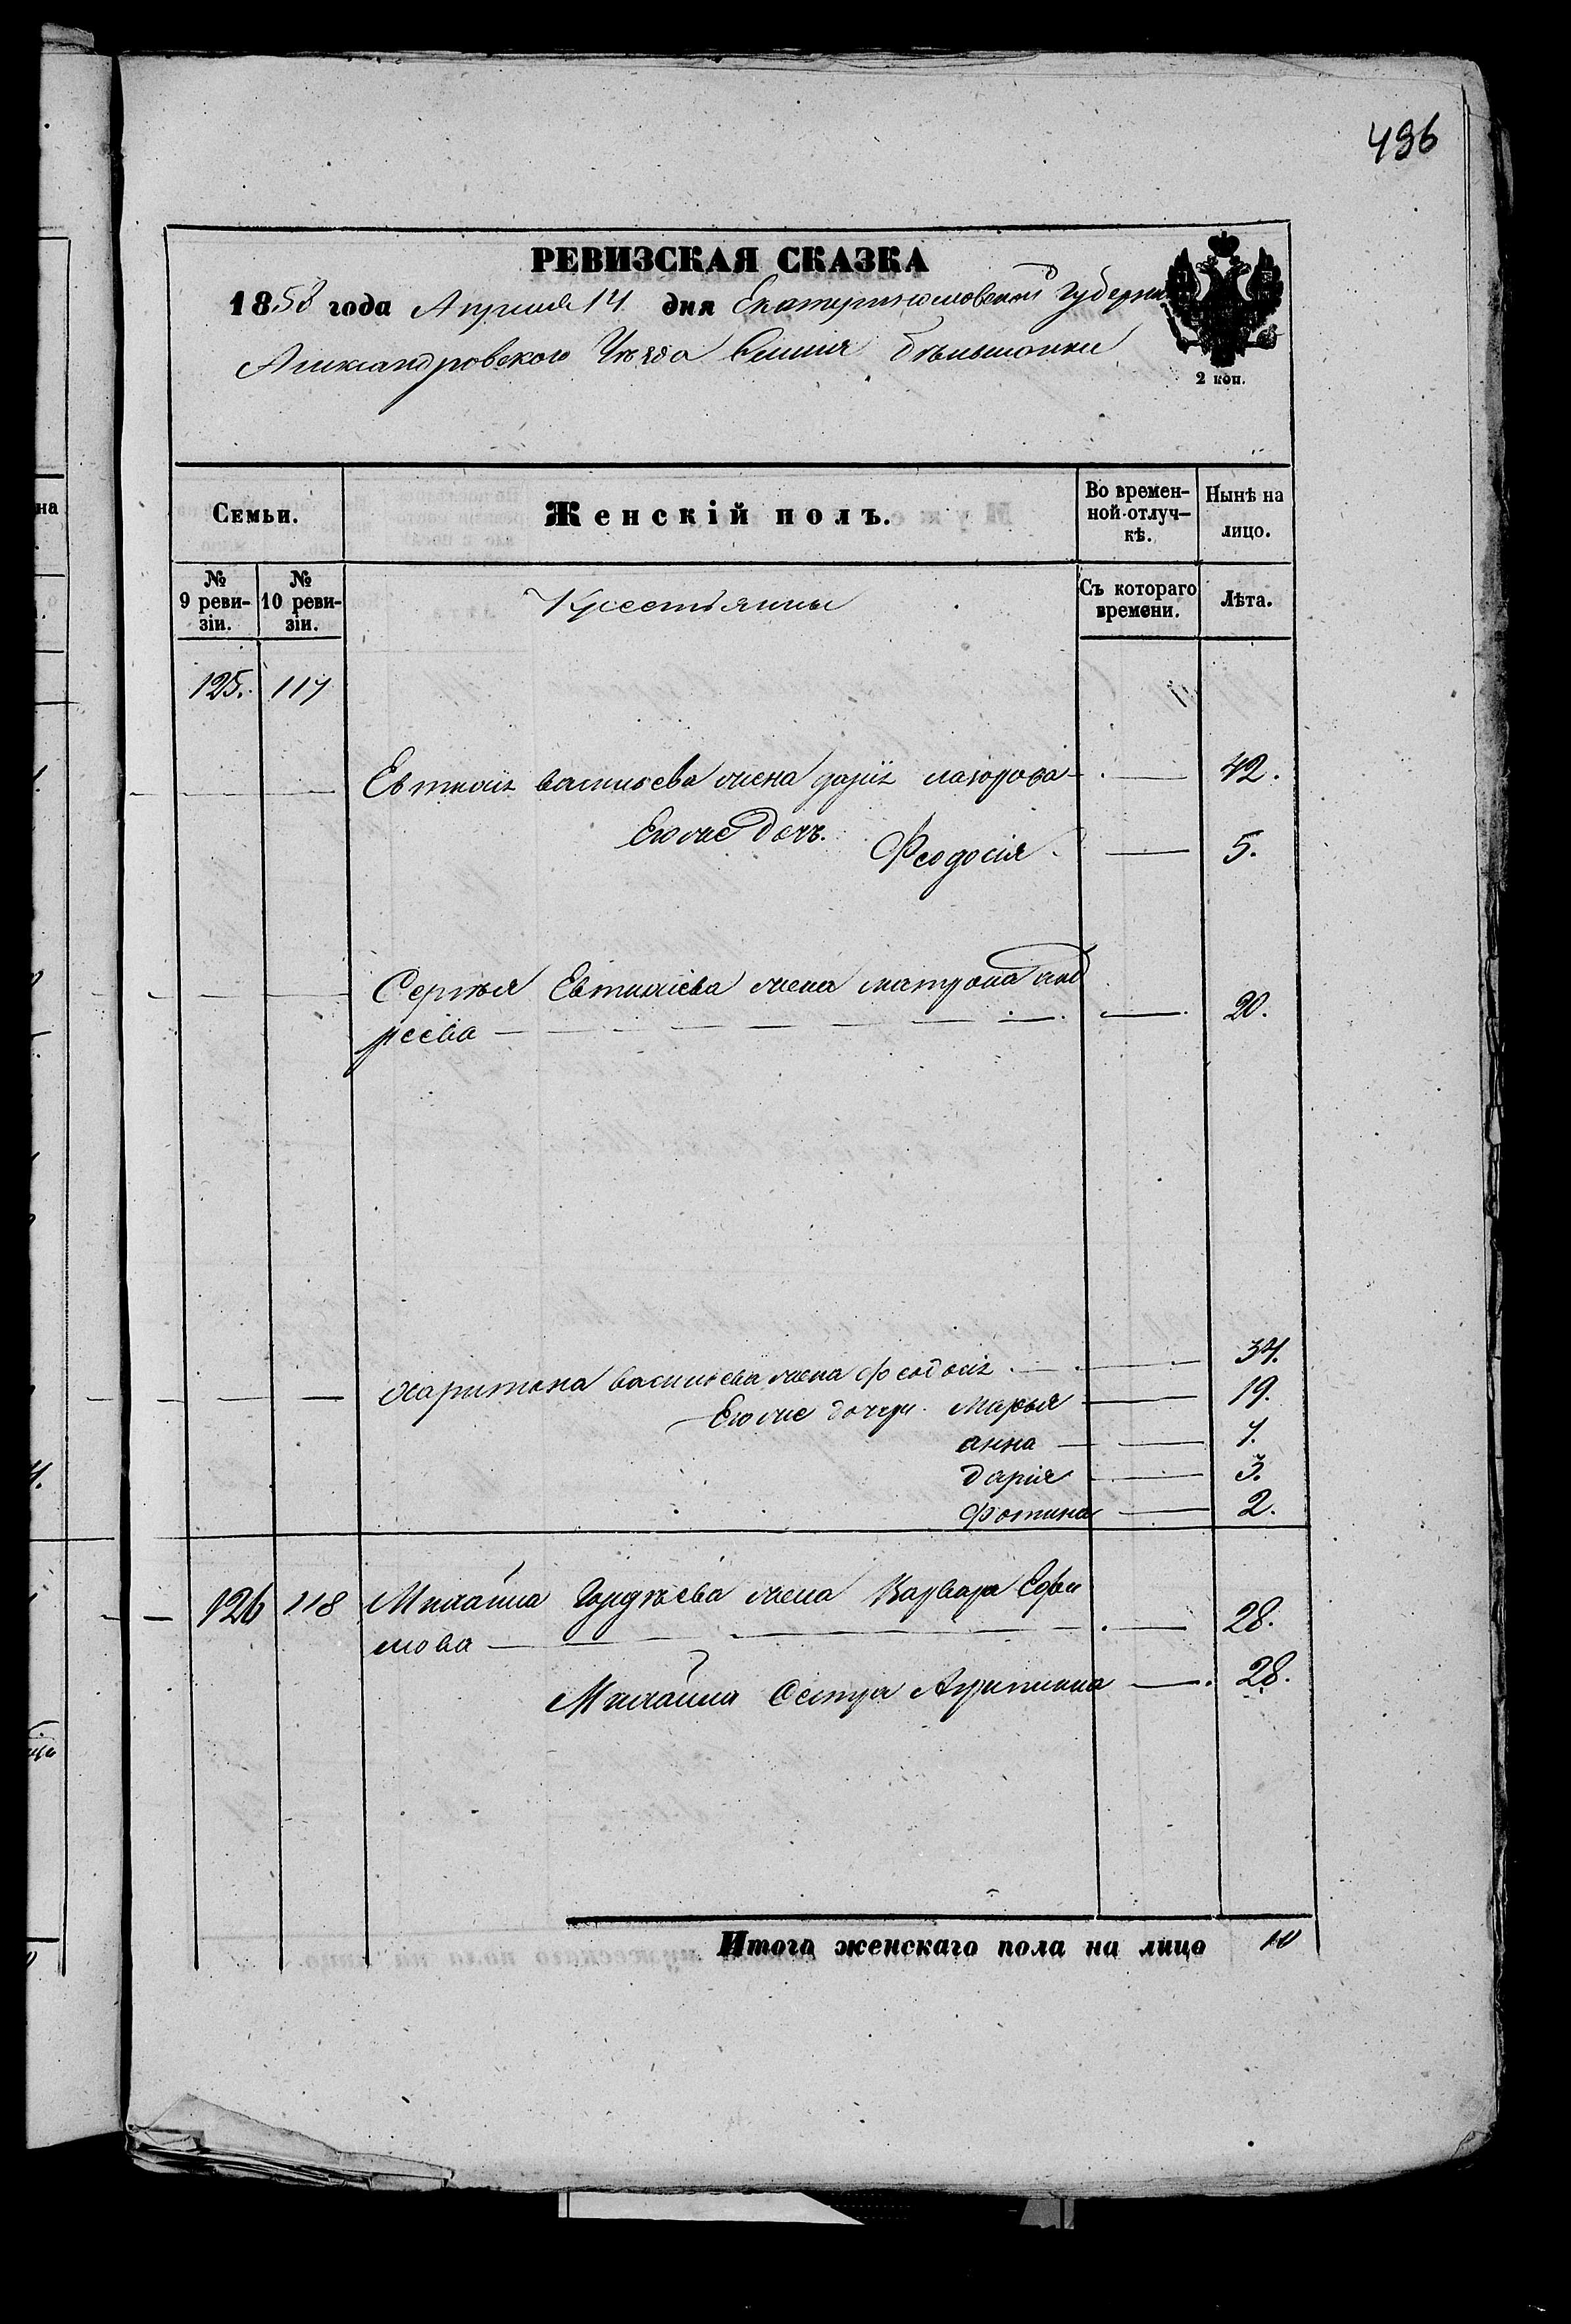 496
РЕВИЗСКАЯ СКАЗКА
1858 года Апреля 14 дня Екатеринославской Губернии
Александровского Уезда Селения
2 коп.
Семьи.
Женскій полъ.
Во времен-
ной отлуч-
кѣ.
Нынѣ на
лицо.
№
9 реви-
зіи.
№
10 реви-
зіи.
Крестьянны
Съ котораго
времени.
Лѣта.
125. 117
Евтихія васильева жена дарія 42.
Его же дочь.
Феодосія 5.
Сергѣя Евтихіева жена матрона
20.
харитона васильева жена феодосія 34.
Его же дочери. марья 19.
анна 7.
дарія 3.
фотина 2.
126 118 Михайла Гордѣева жена Варвара Ефи
мова 28.
Михайла Сестра 28.
Итого женскаго пола на лицо 10